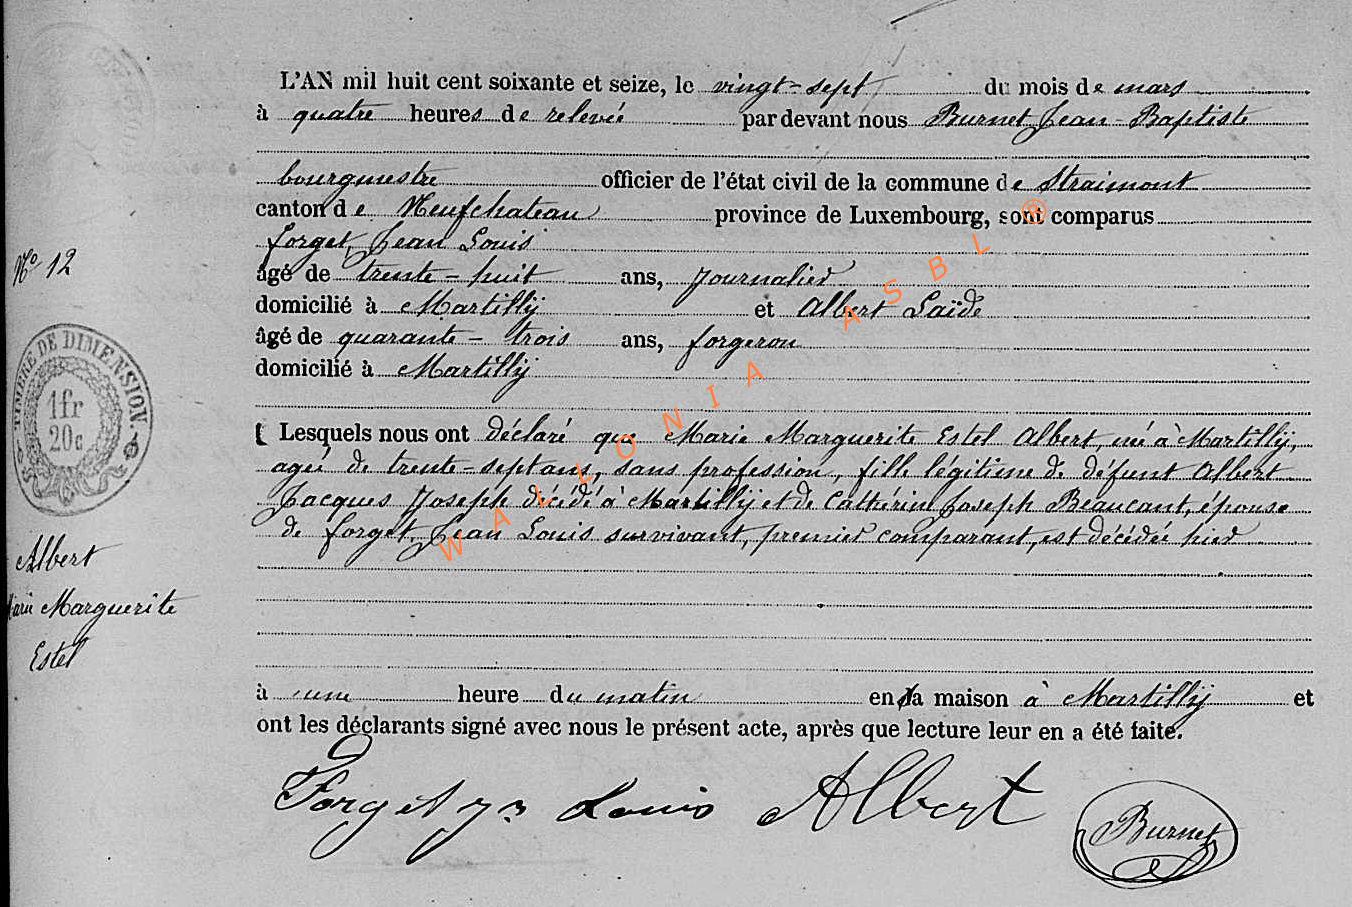 L'AN mil huit cent soixante et seize, le vingt-sept du mois de mars
à quatre heures de relevée par devant nous Burnet Jean-Baptiste
bourgmestre officier de l'état civil de la commune de Straimont
canton de Neufchateau province de Luxembourg, sont comparus
forget, Jean Louis
âgé de trente-huit ans, journalier
domicilié à Martilly et Albert Laïde
âgé de quarante-trois ans, forgeron
domicilié à Martilly
Lesquels nous ont déclaré que Marie Marguerite Estel Albert, né à Martilly,
agée de trente-sept ans, sans profession, fille légitime de défunt Albert
Jacques Joseph décédé à Martilly et de Cathérine Joseph Beaucant, épouse
de forget, Jean Louis survivant, premier comparant, est décédée hier
à une heure du matin en sa maison à Martilly et
ont les déclarants signé avec nous le présent acte, après que lecture leur en a été faite.
Forget Louis Albert Burnet
Nº 12
TIMBRE DE DIMENSION.
1fr
20c
Albert
Marie Marguerite
Estel
WALLONIA ASBL ®